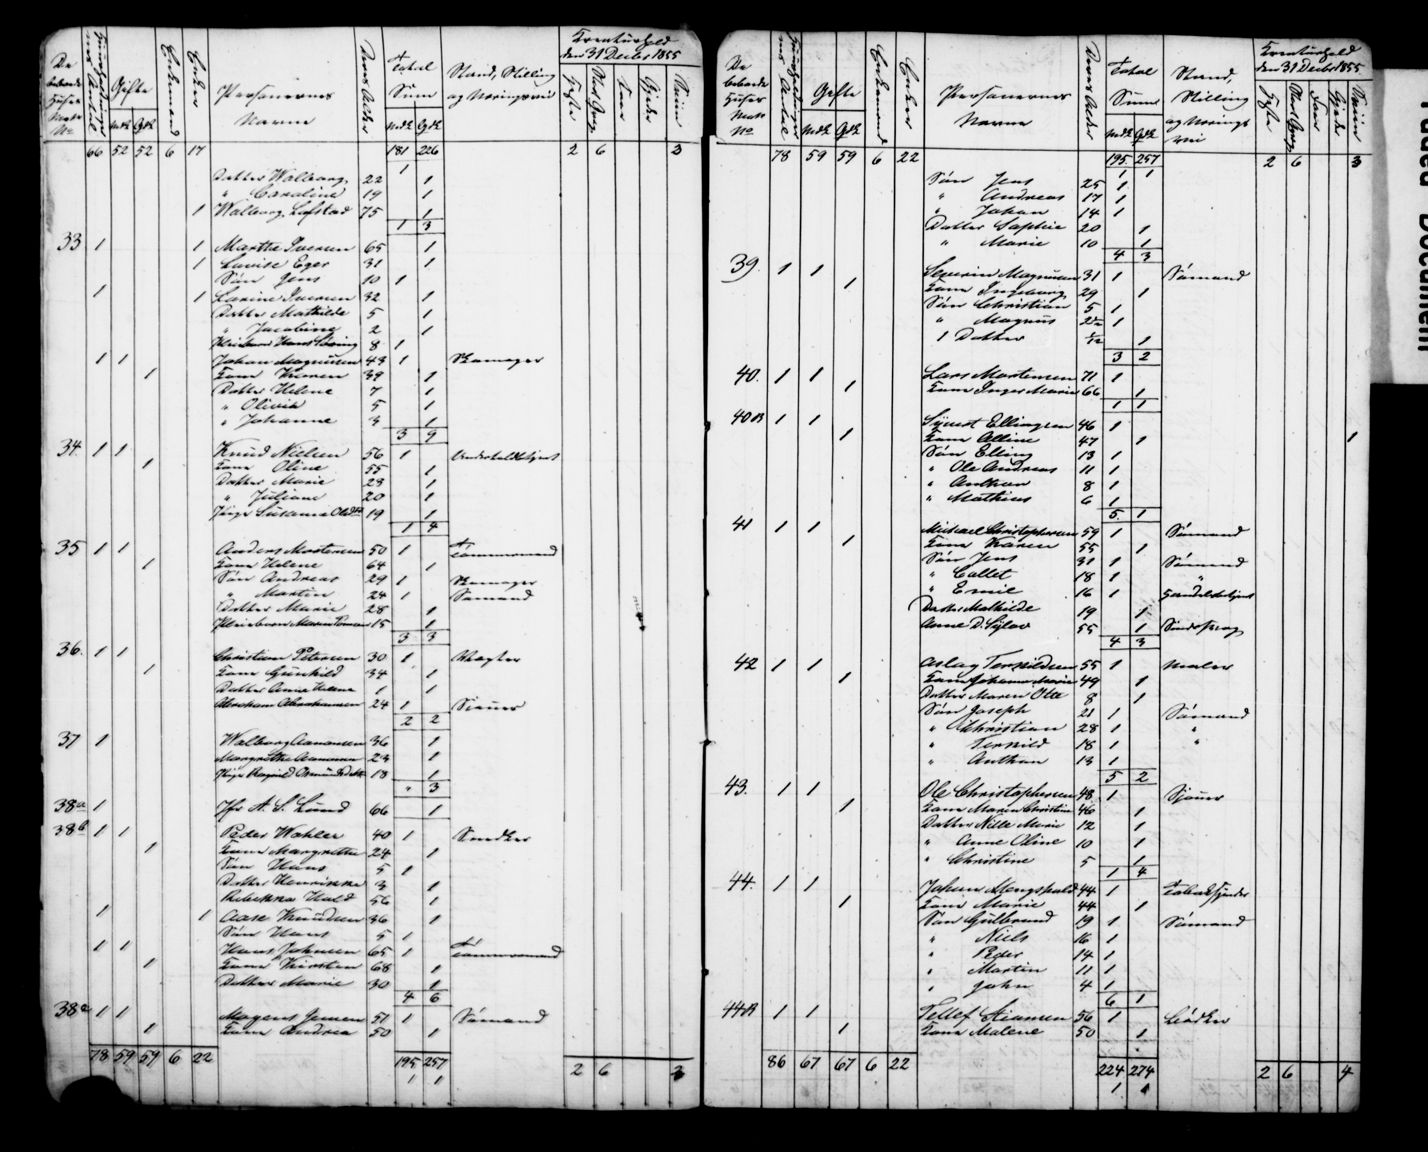 De beboede Huses Matr. No
Huusholdningernes Antal
Gifte
Mdk Qdk
Enkemænd
Enker
Personernes Navne
Deres Alder
Total Sum
Mdk Qdk
Stand, Stilling og Næringsvei
Kreaturhold den 31 Decbr 1855
Heste
Stort Qvæg
Faar
Gjeder
Sviin
66 52 52 6 17 181 226 2 6 3
1
Datter Walborg 22 1
" Caroline 19 1
1 Walborg Lofstad 75 1
1 3
33 1 1 Marthe Iversen 65 1
1 Lovise Eger 31 1
Søn Jens 10 1
1 1 Larine Iversen 32 1
Datter Mathilde 5 1
" Jacobine 2 1
Pleiebarn Hans 8 1
1 1 Johan Magnusen 43 1 Skomager
1 Kone Karen 39 1
Datter Helene 7 1
" Olivia 5 1
" Johanne 3 1
3 9
34 1 1 Knud Nielsen 56 1
1 Kone Oline 55 1
Datter Marie 28 1
" Juliane 20 1
Pige Susanne Olsdtr 19 1
1 4
35 1 1 Anders Mortensen 50 1 Tømmermand
1 Kone Helene 64 1
Søn Andreas 29 1 Skomager
" Martin 24 1 Sømand
Datter Marie 28 1
Pleiebarn Maren 15 1
3 3
36. 1 1 Christian Petersen 30 1 Vægter
1 Kone Gunhild 34 1
Datter Anne Helene 1 1
Abraham Abrahamsen 24 1 Sjouer
2 2
37 1 Walborg Aanonsen 36 1
Margrethe Aanonsen 23 1
Pige Ragnild 18 1
" 3
38a 1 Jfr A. S. Lund 66 1
38b 1 1 Peder Wahler 40 1 Snedker
1 Kone Margrethe 24 1
Søn Hans 5 1
Datter Henrikke 3 1
Rebekka Hald 56 1
1 1 Aase Knudsen 36 1
Søn Hans 5 1
1 1 Hans Johnsen 65 1 Tømmermand
1 Kone Kirsten 68 1
Datter Marie 30 1
4 6
38c 1 1 Mogens Jensen 51 1 Sømand
1 Kone Andrea 50 1
78 59 59 6 22 195 257 2 6 3
1 1
De beboede Huses Matr No
Huusholdningernes Antal
Gifte
Mdk Qdk
Enkemænd
Enker
Personernes Navne
Deres Alder
Total Sum
Mdk Qdk
Stand, Stilling og Næringsvei
Kreaturhold den 31 Decbr 1855
Heste
Stort Qvæg
Faar
Gjeder
Sviin
78 59 59 6 22 195 257 2 6 3
1 1
Søn Jens 25 1
" Andreas 17 1
" Johan 14 1
Datter Sophie 20 1
" Marie 10 1
4 3
39. 1 1 Severin Magnusen 31 1 Sømand
1 Kone Ingeborg 29 1
Søn Christian 5 1
" Magnus 1
1 Datter 1
3 2
40. 1 1 Lars Mortensen 71 1
1 Kone Inger Marie 66 1
1 1
40B 1 1 Syvert Ellingsen 46 1
1 Kone Alline 47 1 1
Søn Elling 13 1
" Ole Andreas 11 1
" Anthon 8 1
" Mathias 6 1
5 1
41 1 1 Michael Christophersen 59 1 Sømand
1 Kone Karen 55 1
Søn Jens 31 1 Sømand
" Collet 18 1 "
" Emil 16 1
Datter Mathilde 19 1
Anne D. Sylow 55 1
4 3
42 1 1 Aslag Terkildsen 55 1 Maler
1 Kone Johanne Marie 49 1
Datter Maren Otte 8 1
Søn Joseph 21 1 Sømand
" Christian 28 1 "
" Terkild 18 1 "
" Anthon 13 1
5 2
43. 1 1 Ole Christophersen 48 1 Sjouer
1 Kone Maren Christine 46 1
Datter Nille Marie 12 1
" Anne Oline 10 1
" Christine 5 1
1 4
44. 1 1 Johan 44 1
1 Kone Marie 44 1
Søn Gulbrand 19 1 Sømand
" Niels 16 1
" Peder 14 1
" Martin 11 1
" John 4 1
6 1
44B 1 1 Tellef 56 1 Bødker
1 Kone Malene 50 1
86 67 67 6 22 224 274 2 6 4
1 1